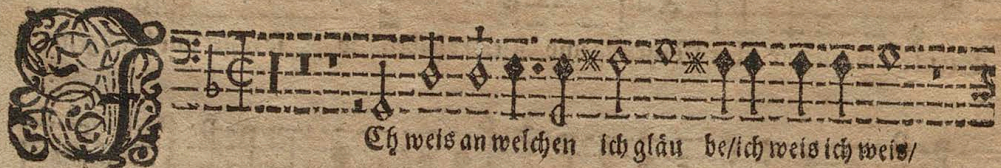 ICh weis an welchen ich gläu be/ich weis ich weis/